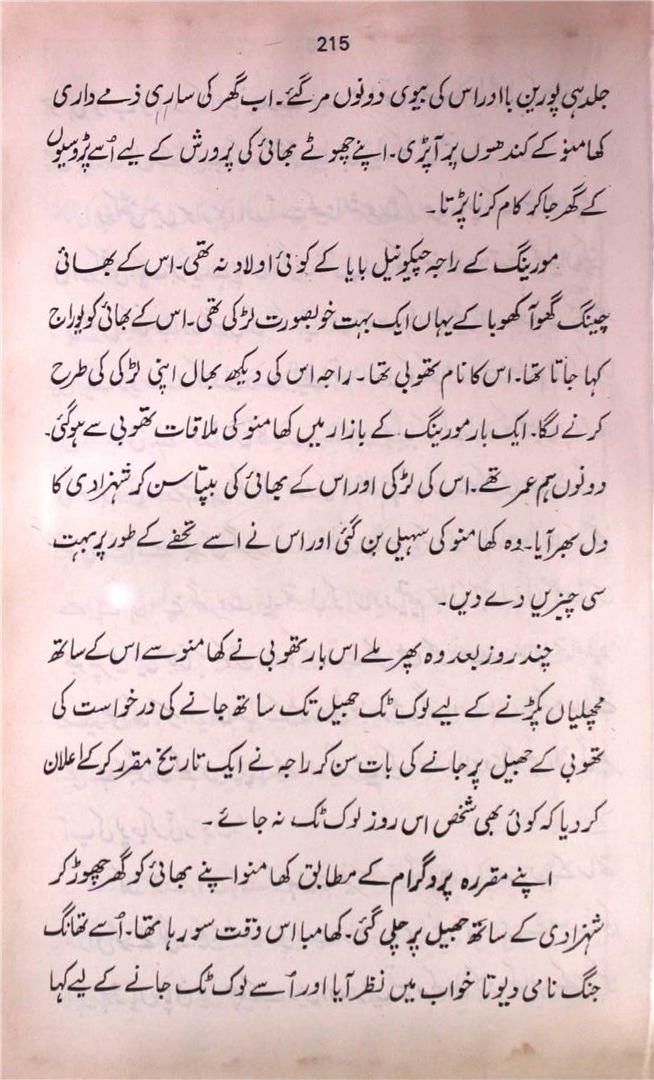 215
جلد ہی پورین با اور اس کی بیوی دونوں مر گئے۔ اب گھر کی ساری ذمے داری
کھامنو کے کندھوں پر آپڑی۔ اپنے چھوٹے بھائی کی پرورش کے لیے اُسے پڑوسیوں
کے گھر جاکر کام کرنا پڑتا۔
مورینگ کے راجہ چیکونیل بابا کے کوئی اولاد نہ تھی۔ اس کے بھائی
چینگ گھوآ کھوبا کے یہاں ایک بہت خوبصورت لڑکی تھی۔ اس کے بھائی کو یوراج
کہا جاتا تھا۔ اس کا نام تھوبی تھا۔ راجہ اس کی دیکھ بھال اپنی لڑکی کی طرح
کرنے لگا۔ ایک بار مورینگ کے بازار میں کھامنو کی ملاقات تھوبی سے ہوگئی۔
دونوں ہم عمر تھے۔ اس کی لڑکی اور اس کے بھائی کی بپتا سن کر شہزادی کا
دل بھر آیا۔ وہ کھامنو کی سہیلی بن گئی اور اس نے اسے تحفے کے طور پر بہت
سی چیزیں دے دیں۔
چند روز بعد وہ پھر ملے اس بار تھوبی نے کھامنو سے اس کے ساتھ
مچھلیاں پکڑنے کے لیے لوک ٹک جھیل تک ساتھ جانے کی درخواست کی
تھوبی کے جھیل پر جانے کی بات سن کر راجہ نے ایک تاریخ مقرر کرکے اعلان
کردیا کہ کوئی بھی شخص اس روز لوک ٹک نہ جائے۔
اپنے مقررہ پروگرام کے مطابق کھامنو اپنے بھائی کو گھر چھوڑ کر
شہزادی کے ساتھ جھیل پر چلی گئی۔ کھامبا اس وقت سو رہا تھا۔ اُسے تھانگ
جنگ نامی دیوتا خواب میں نظر آیا اور اُسے لوک ٹک جانے کے لیے کہا